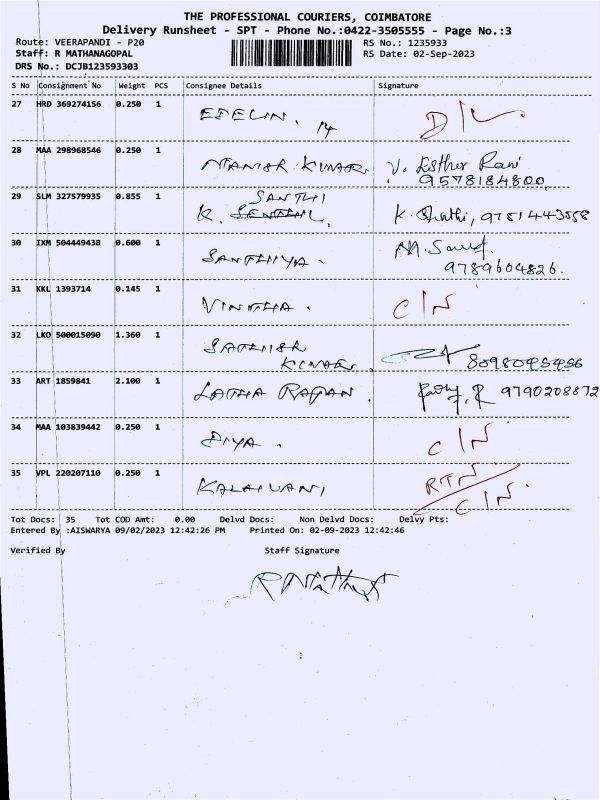 THE PROFESSIONAL COURIERS, COIMBATORE
Delivery Runsheet - SPT - Phone No.:0422-3505555 - Page No.:3
Route: VEERAPANDI - P20 RS No.: 1235933
Staff: R MATHANAGOPAL RS Date: 02-Sep-2023
DRS No.: DCJB123593303
S No Consignment No Weight PCS Consignee Details Signature
27 HRD 369274156 0.250 1 EDELIN. 14 D/L
28 MAA 298968546 0.250 1 KUMAR V. Esther Rani
9578184800
29 SLM 327579935 0.855 1 SANTHI
K. SENTHIL, K. Shathi, 9751443558
30 IXM 504449438 0.600 1 SANTHIYA. M.
9789604826.
31 KKL 1393714 0.145 1 VINITHA. C/N
32 LKO 500015090 1.360 1 SATHISH
KUMAR 8098095456
33 ART 1859841 2.100 1 LATHA RAJAN. 9790208872
34 MAA 103839442 0.250 1 DIYA. C/N
35 VPL 220207110 0.250 1 KALAIVANI, RTN
C/N.
Tot Docs: 35 Tot COD Amt: 0.00 Delvd Docs: Non Delvd Docs: Delvy Pts:
Entered By :AISWARYA 09/02/2023 12:42:26 PM Printed On: 02-09-2023 12:42:46
Verified By Staff Signature